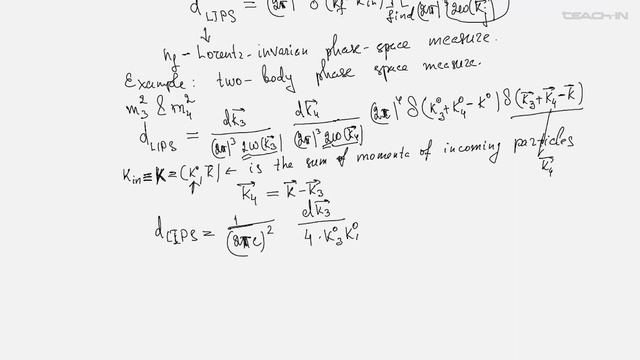 TEACH-IN
d_LIPS = (2π)⁴ δ(K_f - K_in) find (2π)³ 2ω(K⃗_j)
n_f - Lorentz-invarian phase-space measure.
Example: two-body phase space measure.
m₃² & m₄²
d_LIPS = dk⃗₃ / (2π)³ 2ω(k⃗₃) dk⃗₄ / (2π)³ 2ω(k⃗₄) (2π)⁴ δ(K₃⁰+K₄⁰-K⁰) δ(K⃗₃+K⃗₄-K⃗)
K_in ≡ K = (K⁰, K⃗) ← is the sum of momenta of incoming particles
K⃗₄
K⃗₄ = K⃗ - K⃗₃
d_LIPS = 1 / (2π)² dk⃗₃ / 4·K₃⁰K⁰